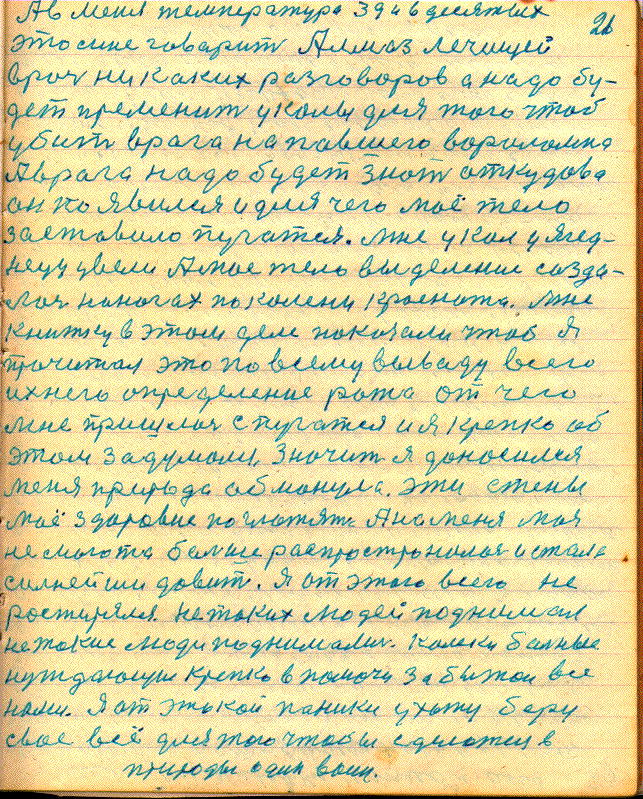 26
А в меня температура 39 и 6 десятых
это мне говарит Алмаз лечищей
врач никаких разговоров а надо бу-
дет пременит уколы для того чтоб
убить врага напавшего вораломна
А врага надо будет знат откудова
он появился и для чего моё тело
заставило пугатся. Мне укол у ягод-
нецу двели А мое тело выделение созда-
лоя на ногах по колени краснота. Мне
книжку в этом деле показали чтоб я
прочитал это по всему выводу всего
ихнего определение рожа от чего
мне пришлоя спугатся и я крепко об
этом задумалм, значит я доносился
меня природа обманула. эти стены
моё здоровие поглотят. А на меня моя
немогота болше распростронилоя и стала
силнейши довит. Я от этого всего не
ростирялся не таких людей поднимал
не такие люди поднималис. калеки болные
нуждающии крепко в помочи забытои все
нами. Я от этокой паники ухожу беру
свое всё для того чтобы сделотсу в
природы один воин.